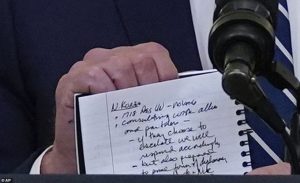 N. Korea
• 1718 Res UN -
• Consulting with allies
and partners
- if they choose to
escalate we will
respond accordingly
- but also prepared
to some of diplomacy
© AP